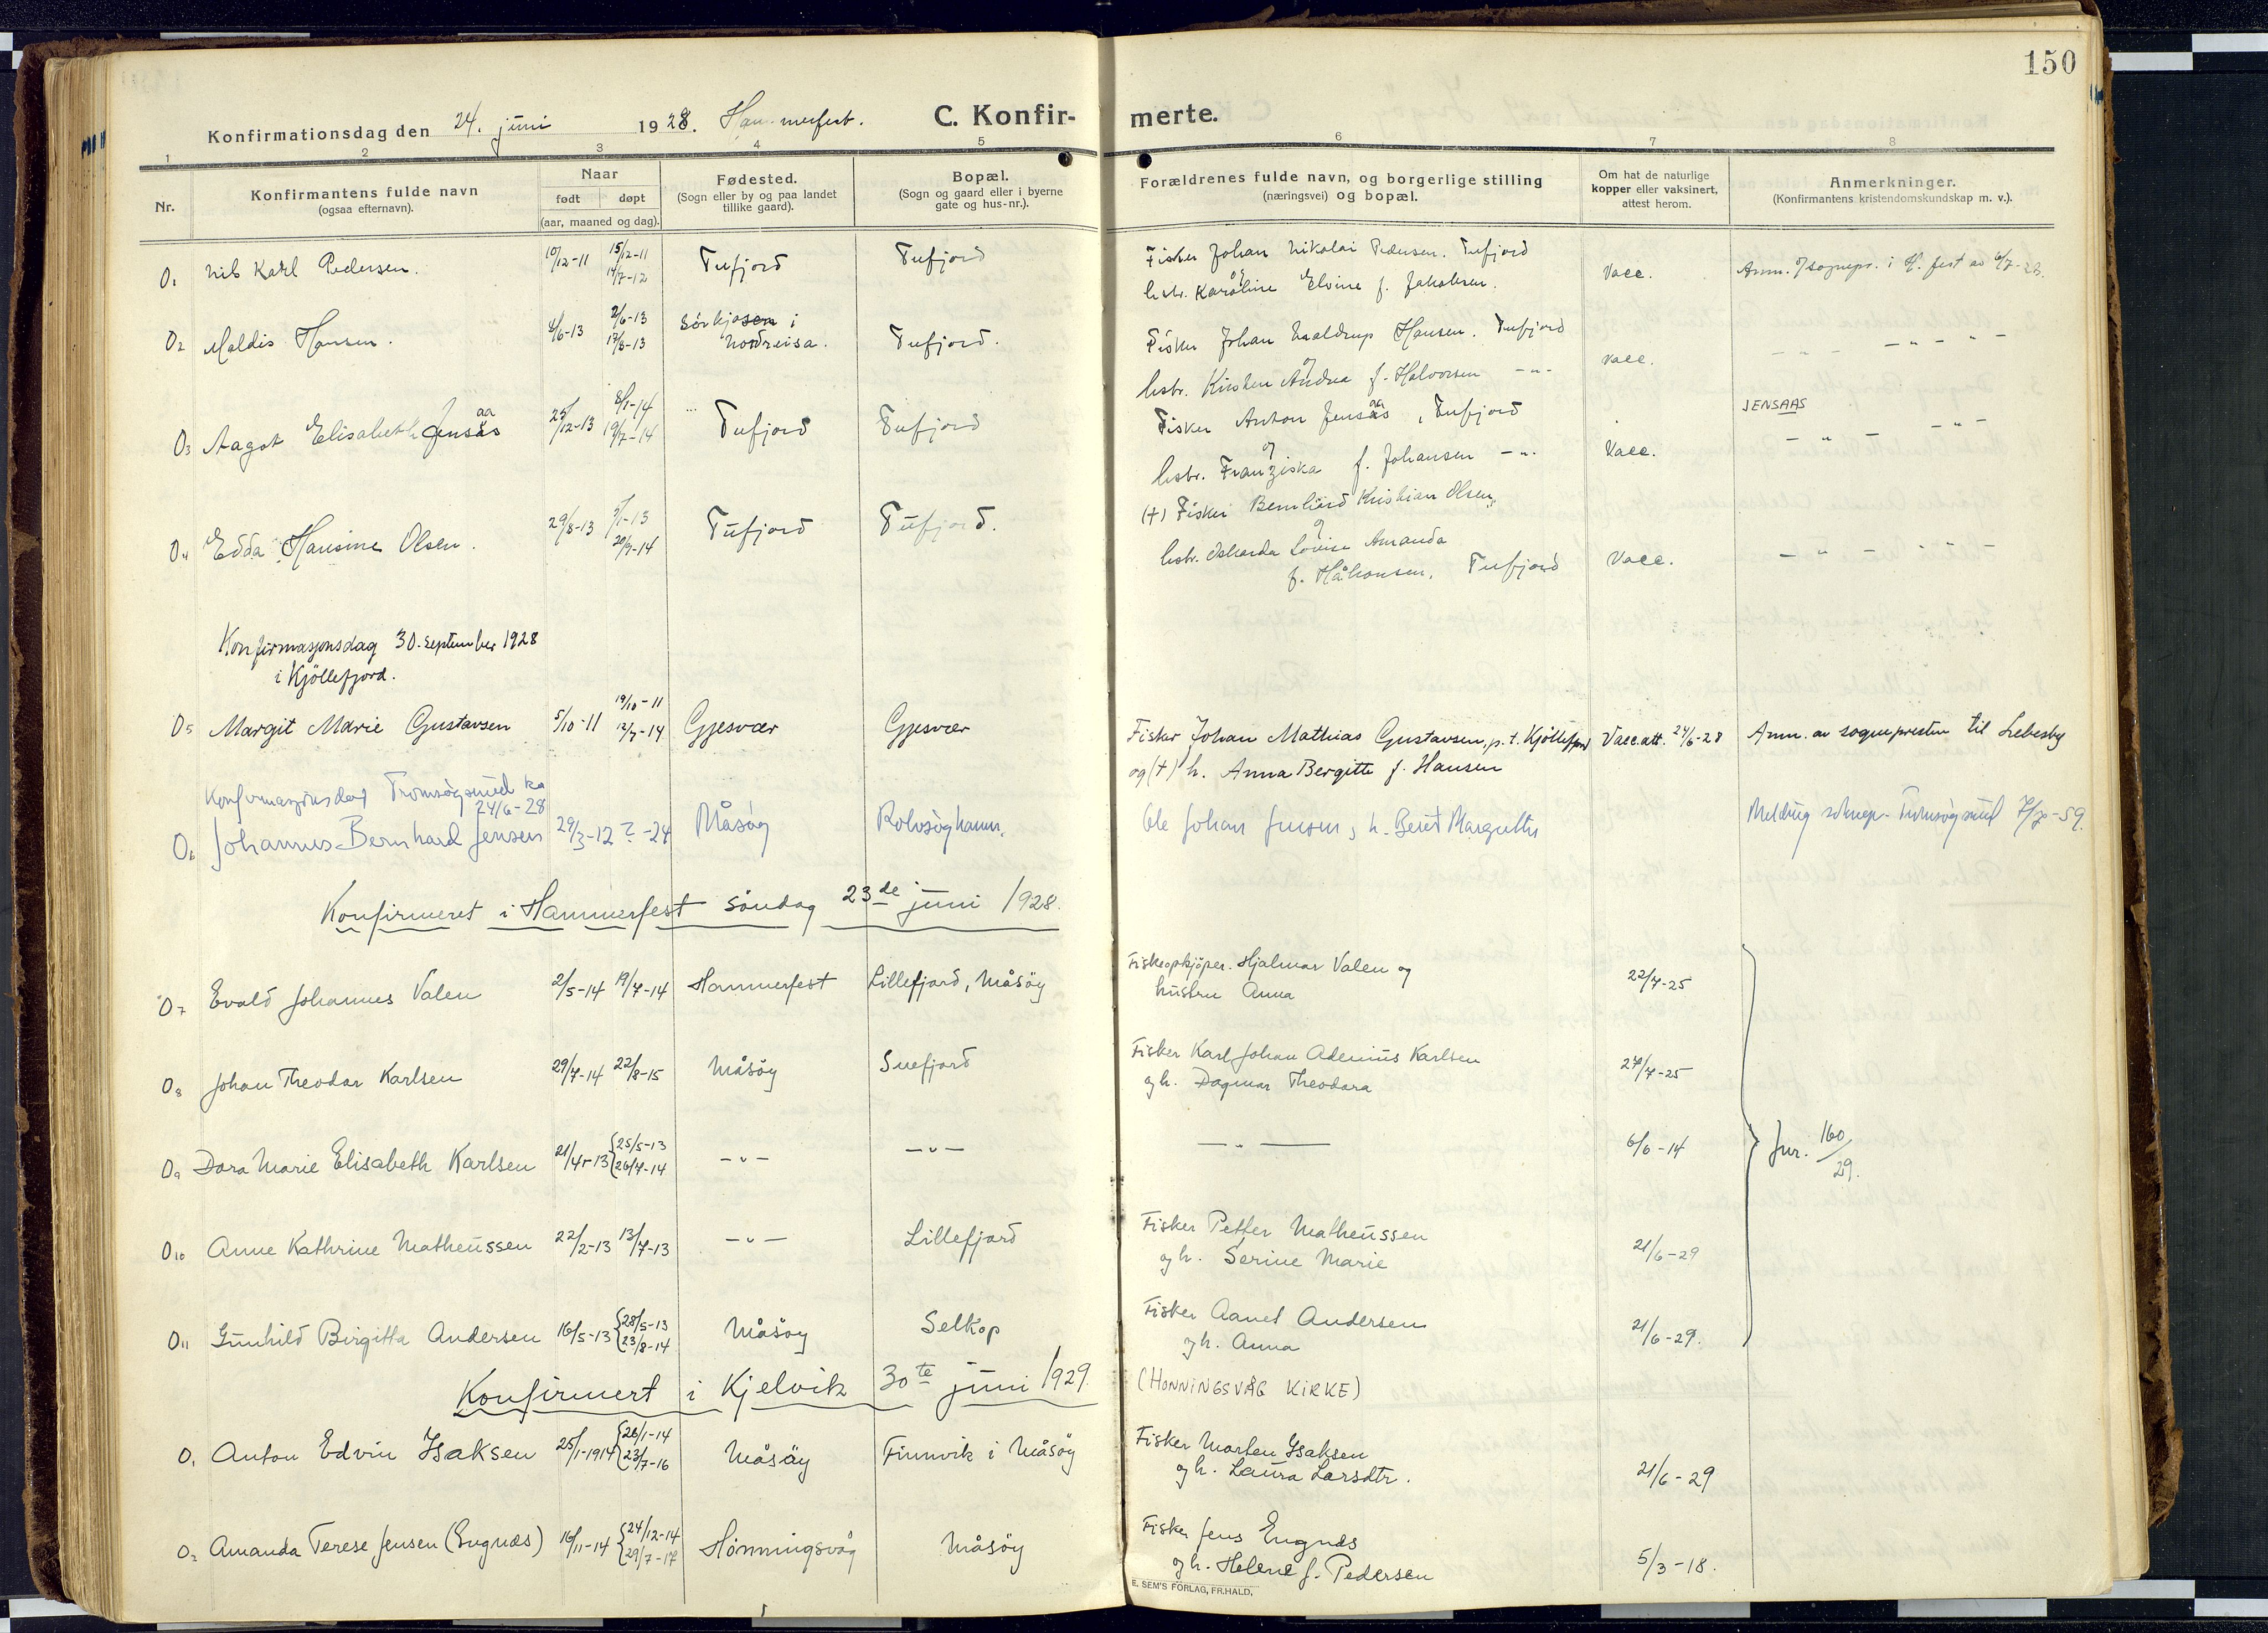 150
Konfirmationsdag den 24. juni 1928. Hammerfest. C. Konfir-merte.
1 2 3 4 5 6 7 8
Nr.
Konfirmantens fulde navn
(ogsaa efternavn).
Naar
født døpt
(aar, maaned og dag).
Fødested.
(Sogn eller by og paa landet
tillike gaard).
Bopæl.
(Sogn og gaard eller i byerne
gate og hus-nr.).
Forældrenes fulde navn, og borgerlige stilling
(næringsvei) og bopæl.
Om hat de naturlige
kopper eller vaksinert,
attest herom.
Anmerkninger.
(Konfirmantens kristendomskundskap m. v.).
01 Nils Karl Pedersen. 10/12-11 15/12-11 Tufjord Tufjord Fisker Johan Nikolai Pedersen. Tufjord Vacc. Anm. af sognepr. i H.fest av 6/7-28.
14/7-12 og
hstr. Karoline Elvine f. Jakobsen.
02 Maldis Hansen. 4/6-13 2/6-13 Sörkjosen i Tufjord. Fisker Johan Hansen. Tufjord vacc. - " - - " - " -
17/8-13 Nordreisa. og
hstr. Kirsten Andrea f. Halvorsen - " -
03 Aagot Elisabeth Jensås 25/12-13 8/1-14 Tufjord Tufjord Fisker Anton Jensås, Tufjord Vacc. JENSAAS
aa 19/7-14 og aa - " - - " -
hstr. Franziska f. Johansen - " -
04 Edda Hansine Olsen. 29/8-13 3/1-13 Tufjord Tufjord. (+) Fisker Bernhard Kristian Olsen, Vacc. - " - - " -
20/7-14 og
hstr. Lovise Amanda
f. Håkonsen, Tufjord
Konfirmasjonsdag 30. september 1928
i Kjöllefjord.
05 Margit Marie Gustavsen 5/10-11 19/10-11 Gjesvær Gjesvær Fisker Johan Mathias Gustavsen, p.t. Kjöllefjord Vacc.att. 24/6-28 Anm. av sognepresten til Lebesby
12/7-14 og (+) h. Anna Bergitte f. Hansen
Konfirmasjonsdag Tromsöysund ka
24/6-28
06 Johannes Bernhard Jensen 29/3-12 ?-24 Måsöy Rolvsöyhamn. Ole Johan Jensen, h. Berit Margrethe Melding sognep. Tromsöysund 7/7-59.
Konfirmeret i Hammerfest söndag 23de juni 1928.
07 Evald Johannes Valen 2/5-14 19/7-14 Hammerfest Lillefjord, Måsöy Fiskeopkjöper. Hjalmar Valen og 22/7-25
hustru Anna
08 Johan Theodor Karlsen 29/7-14 22/8-15 Måsöy Snefjord Fisker Karl Johan Adenius Karlsen 27/7-25
og h. Dagmar Theodora
09 Dora Marie Elisabeth Karlsen 21/4-13 {25/5-13 - " - - " - - " - 6/6-14 Jnr. 160/29.
{26/7-14
010 Anne Kathrine Matheussen 22/2-13 13/7-13 - " - Lillefjord Fisker Petter Matheussen 21/6-29
og h. Serine Marie
011 Gunhild Birgitta Andersen 16/5-13 {28/5-13 Måsöy Selkop Fisker Aanet Andersen 21/6-29.
{23/8-14 og h. Anna
Konfirmert i Kjelvik 30te juni 1929. (HONNINGSVÅG KIRKE)
01 Anton Edvin Isaksen 25/1-1914 {26/1-14 Måsöy Finnvik i Måsöy Fisker Morten Isaksen 21/6-29
{23/7-16 og h. Laura Larsdtr.
02 Amanda Terese Jensen (Engnæs) 16/11-14 {24/12-14 Hönningsvåg Måsöy Fisker Jens Engnæs 5/3-18.
{29/7-17 og h. Helene f. Pedersen
E. SEM'S FÖRLAG, FR.HALD.